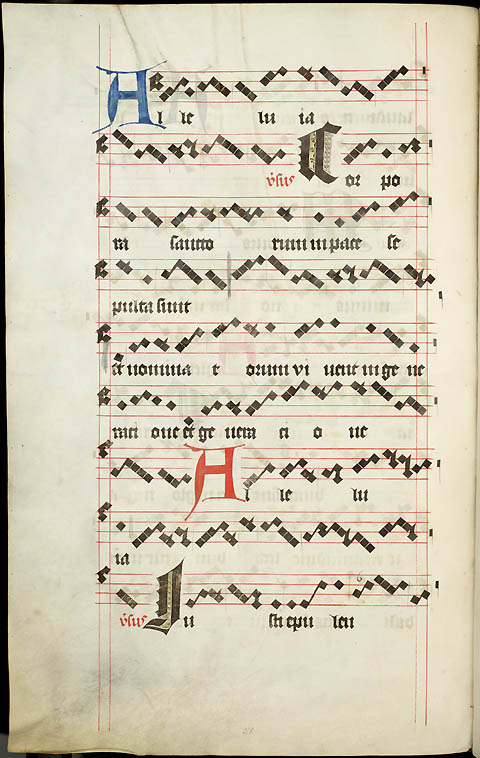 Al le lu ia
v̄sus Cor po
ra sancto rum in pace se
pulta sunt
et nomina e orum vi vent in ge ne
raci one et ge nera ci o ne
Al le lu
ia
v̄sus Iu sti epu len